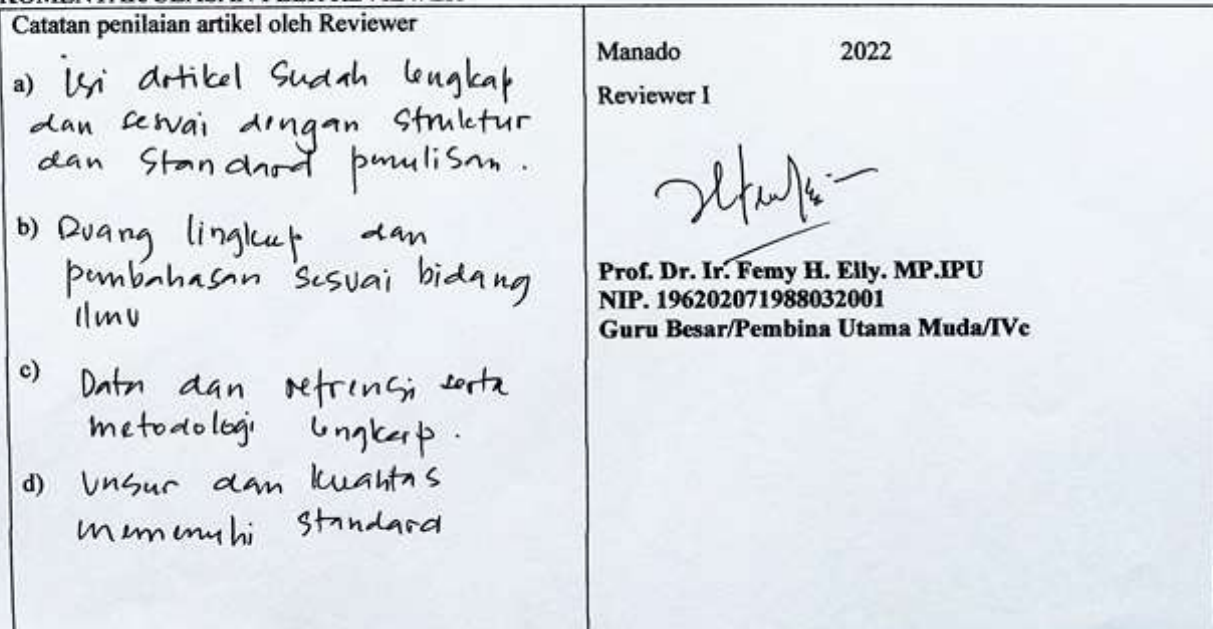 Catatan penilaian artikel oleh Reviewer
a) Isi artikel sudah lengkap
dan sesuai dengan struktur
dan Standard penulisan.
b) Ruang lingkup dan
pembahasan sesuai bidang
ilmu
c) Data dan refrensi serta
metodologi lengkap.
d) Unsur dan kualitas
memenuhi standard
Manado 2022
Reviewer I
Prof. Dr. Ir. Femy H. Elly. MP.IPU
NIP. 196202071988032001
Guru Besar/Pembina Utama Muda/IVc